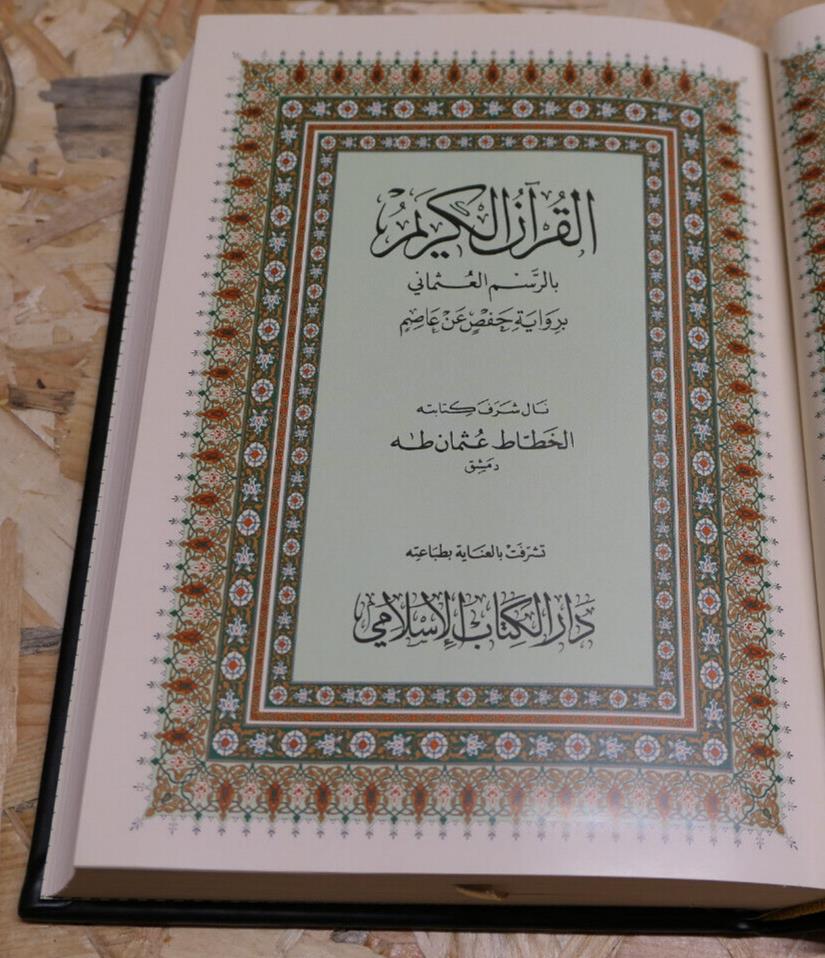 القُرآنُ الكَرِيمُ
بالرَّسْمِ العُثماني
بِرِوَايَةِ حَفْصٍ عَنْ عَاصِمٍ
نَالَ شَرَفَ كِتَابته
الخَطّاط عُثمان طٰه
دمَشق
تشرفَتْ بالعنَاية بطبَاعتِه
دَارُ الكِتَابِ الإِسْلَامِي